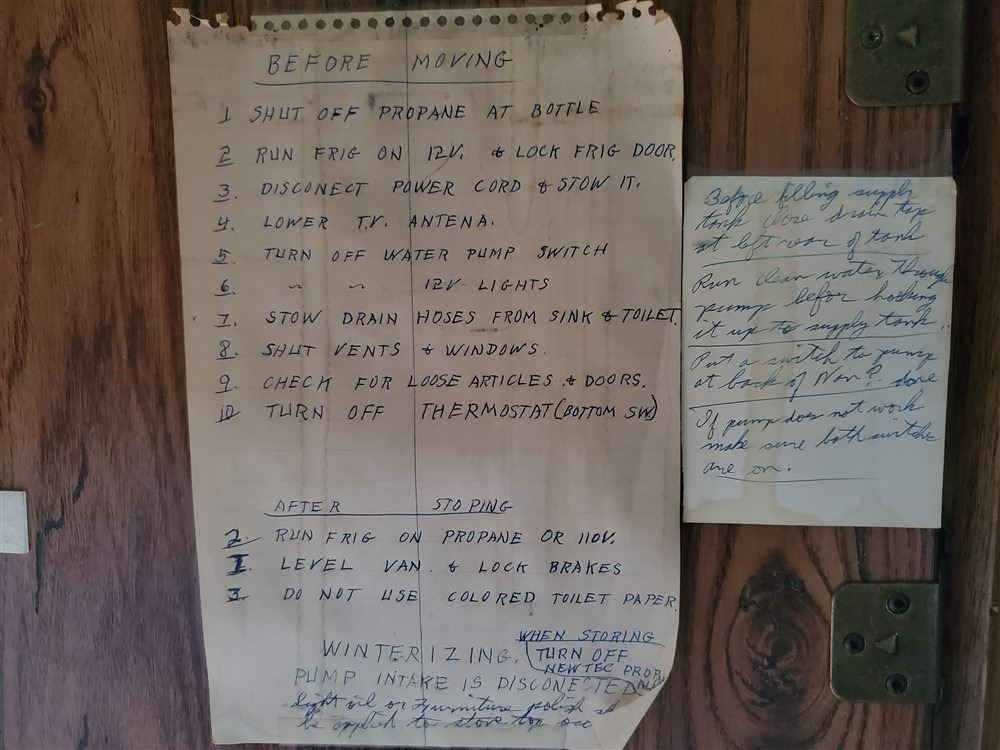 BEFORE MOVING
1 SHUT OFF PROPANE AT BOTTLE
2 RUN FRIG ON 12V. & LOCK FRIG DOOR.
3. DISCONECT POWER CORD & STOW IT.
4. LOWER T.V. ANTENA.
5. TURN OFF WATER PUMP SWITCH
6. " " 12V LIGHTS
7. STOW DRAIN HOSES FROM SINK & TOILET.
8. SHUT VENTS & WINDOWS.
9. CHECK FOR LOOSE ARTICLES & DOORS.
10 TURN OFF THERMOSTAT (BOTTOM SW.)
AFTER STOPING
2. RUN FRIG ON PROPANE OR 110V.
1. LEVEL VAN. & LOCK BRAKES
3. DO NOT USE COLORED TOILET PAPER.
WHEN STORING
TURN OFF
NEWTEC PROP.
WINTERIZING.
PUMP INTAKE IS DISCONECTED
light oil or Furniture polish
be applied to stove top
Before filling supply
tank close drain tap
at left rear of tank
Run clean water through
pump befor hooking
it up to supply tank.
Put a switch to pump
at back of Van? done
If pump does not work
make sure both switches
are on.